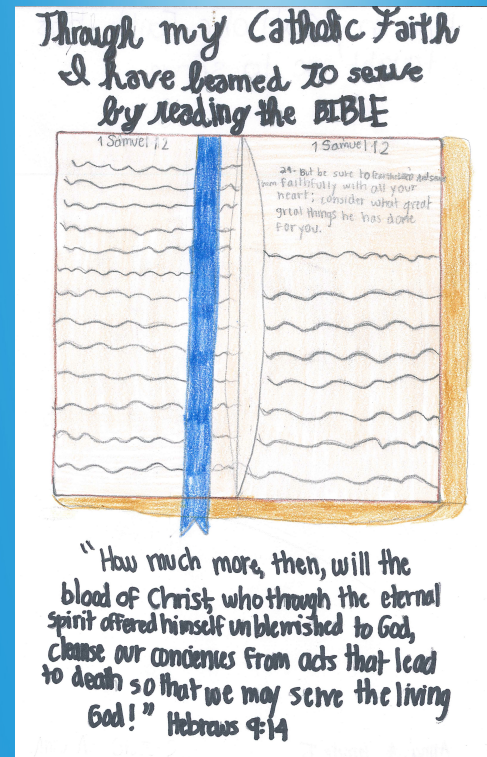 Through my Catholic Faith
I have learned to serve
by reading the BIBLE
1 Samuel 12
1 Samuel 12
24- But be sure to fear the LORD And serve
him faithfully with all your
heart; consider what great
great things he has done
for you.
"How much more, then, will the
blood of Christ, who through the eternal
spirit offered himself unblemished to God,
cleanse our conciences from acts that lead
to death so that we may serve the living
God!" Hebrews 9:14